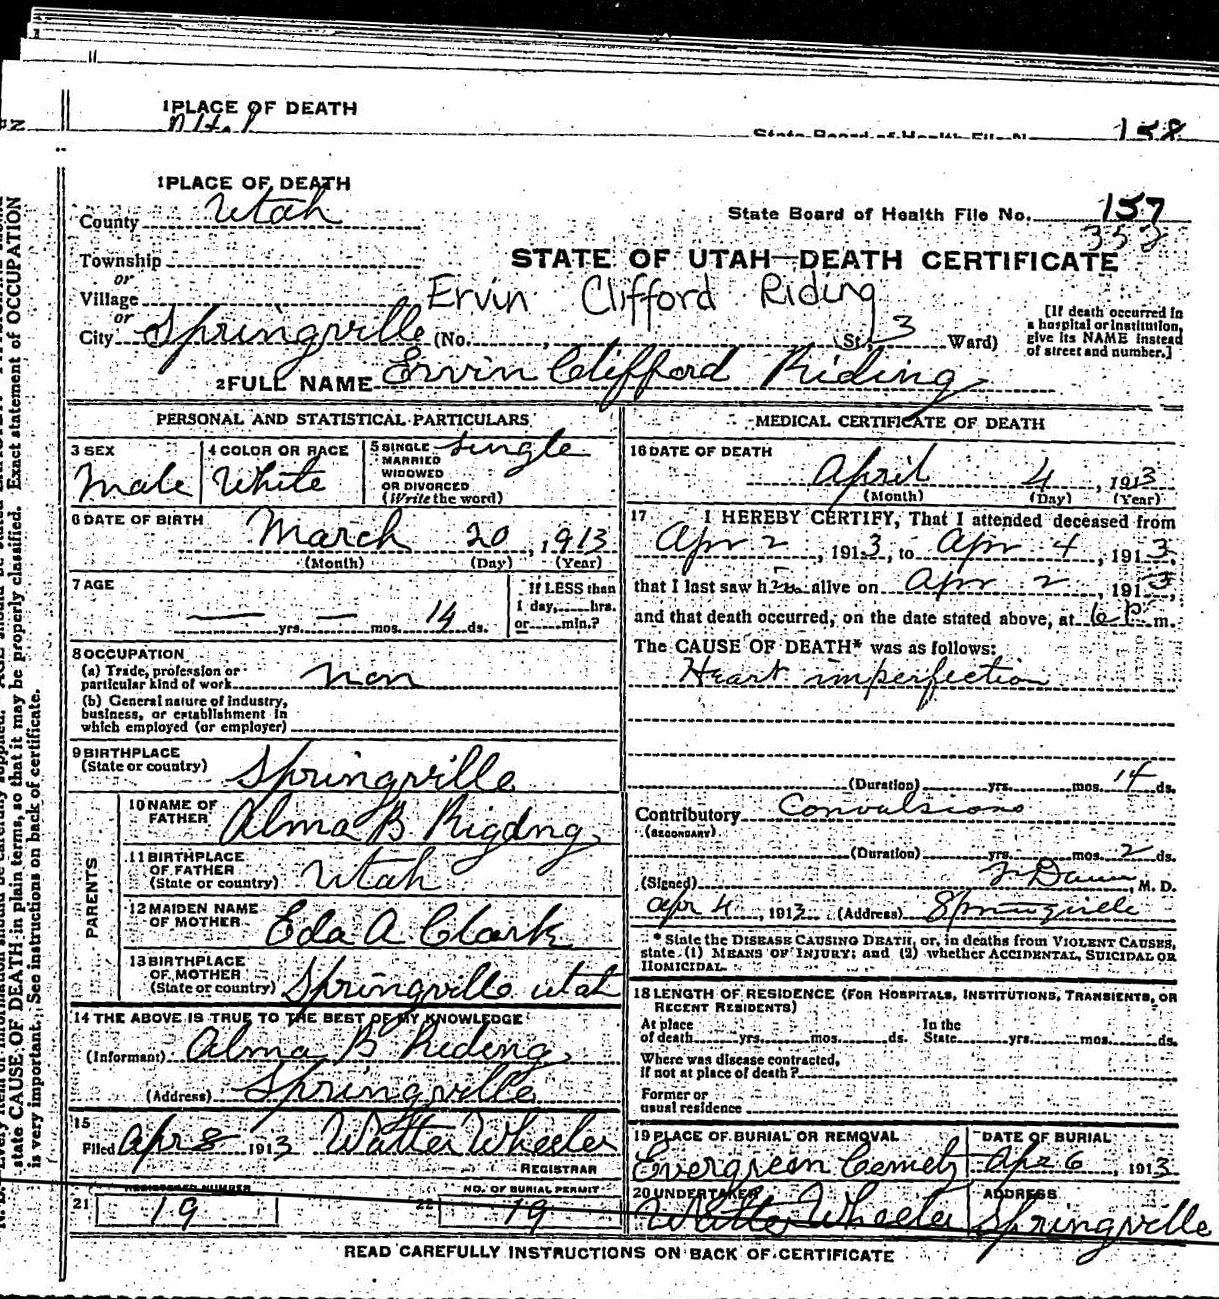 1 PLACE OF DEATH
State Board of Health File N 158
1 PLACE OF DEATH
County Utah
State Board of Health File No. 157
Township
STATE OF UTAH—DEATH CERTIFICATE
or
Village
Ervin Clifford Riding
or
City Springville (No. , St. 3 Ward)
[If death occurred in
a hospital or institution,
give its NAME instead
of street and number.]
2 FULL NAME Ervin Clifford Riding
PERSONAL AND STATISTICAL PARTICULARS
3 SEX
Male
4 COLOR OR RACE
White
5 SINGLE
MARRIED
WIDOWED
OR DIVORCED
(Write the word)
single
6 DATE OF BIRTH
March 20, 1913
(Month) (Day) (Year)
7 AGE
— yrs. — mos. 14 ds.
If LESS than
1 day, hrs.
or min.?
8 OCCUPATION
(a) Trade, profession or
particular kind of work non
(b) General nature of industry,
business, or establishment in
which employed (or employer)
9 BIRTHPLACE
(State or country) Springville
PARENTS
10 NAME OF
FATHER Alma B Rigdng
11 BIRTHPLACE
OF FATHER
(State or country) Utah
12 MAIDEN NAME
OF MOTHER Eda A Clark
13 BIRTHPLACE
OF MOTHER
(State or country) Springville utah
14 THE ABOVE IS TRUE TO THE BEST OF MY KNOWLEDGE
(Informant) Alma B Riding
(Address) Springville
15
Filed Apr 8 1913 Walter Wheeler
REGISTRAR
REGISTERED NUMBER
21 19
NO. OF BURIAL PERMIT
22 19
MEDICAL CERTIFICATE OF DEATH
16 DATE OF DEATH
April 4, 1913
(Month) (Day) (Year)
17 I HEREBY CERTIFY, That I attended deceased from
Apr 2, 1913, to Apr 4, 1913,
that I last saw him alive on Apr 2, 1913,
and that death occurred, on the date stated above, at 6 P. m.
The CAUSE OF DEATH* was as follows:
Heart imperfection
(Duration) yrs. mos. 14 ds.
Contributory Convulsions
(SECONDARY)
(Duration) yrs. mos. 2 ds.
(Signed) , M. D.
Apr 4, 1913 (Address) Springville
* State the DISEASE CAUSING DEATH, or, in deaths from VIOLENT CAUSES,
state (1) MEANS OF INJURY; and (2) whether ACCIDENTAL, SUICIDAL OR
HOMICIDAL.
18 LENGTH OF RESIDENCE (FOR HOSPITALS, INSTITUTIONS, TRANSIENTS, OR
RECENT RESIDENTS)
At place
of death yrs. mos. ds.
In the
State yrs. mos. ds.
Where was disease contracted,
if not at place of death?
Former or
usual residence
19 PLACE OF BURIAL OR REMOVAL
Evergreen Cemetz
DATE OF BURIAL
Apr 6, 1913
20 UNDERTAKER
Walter Wheeler
ADDRESS
Springville
READ CAREFULLY INSTRUCTIONS ON BACK OF CERTIFICATE
state CAUSE OF DEATH in plain terms, so that it may be properly classified. Exact statement of OCCUPATION
is very important. See instructions on back of certificate.